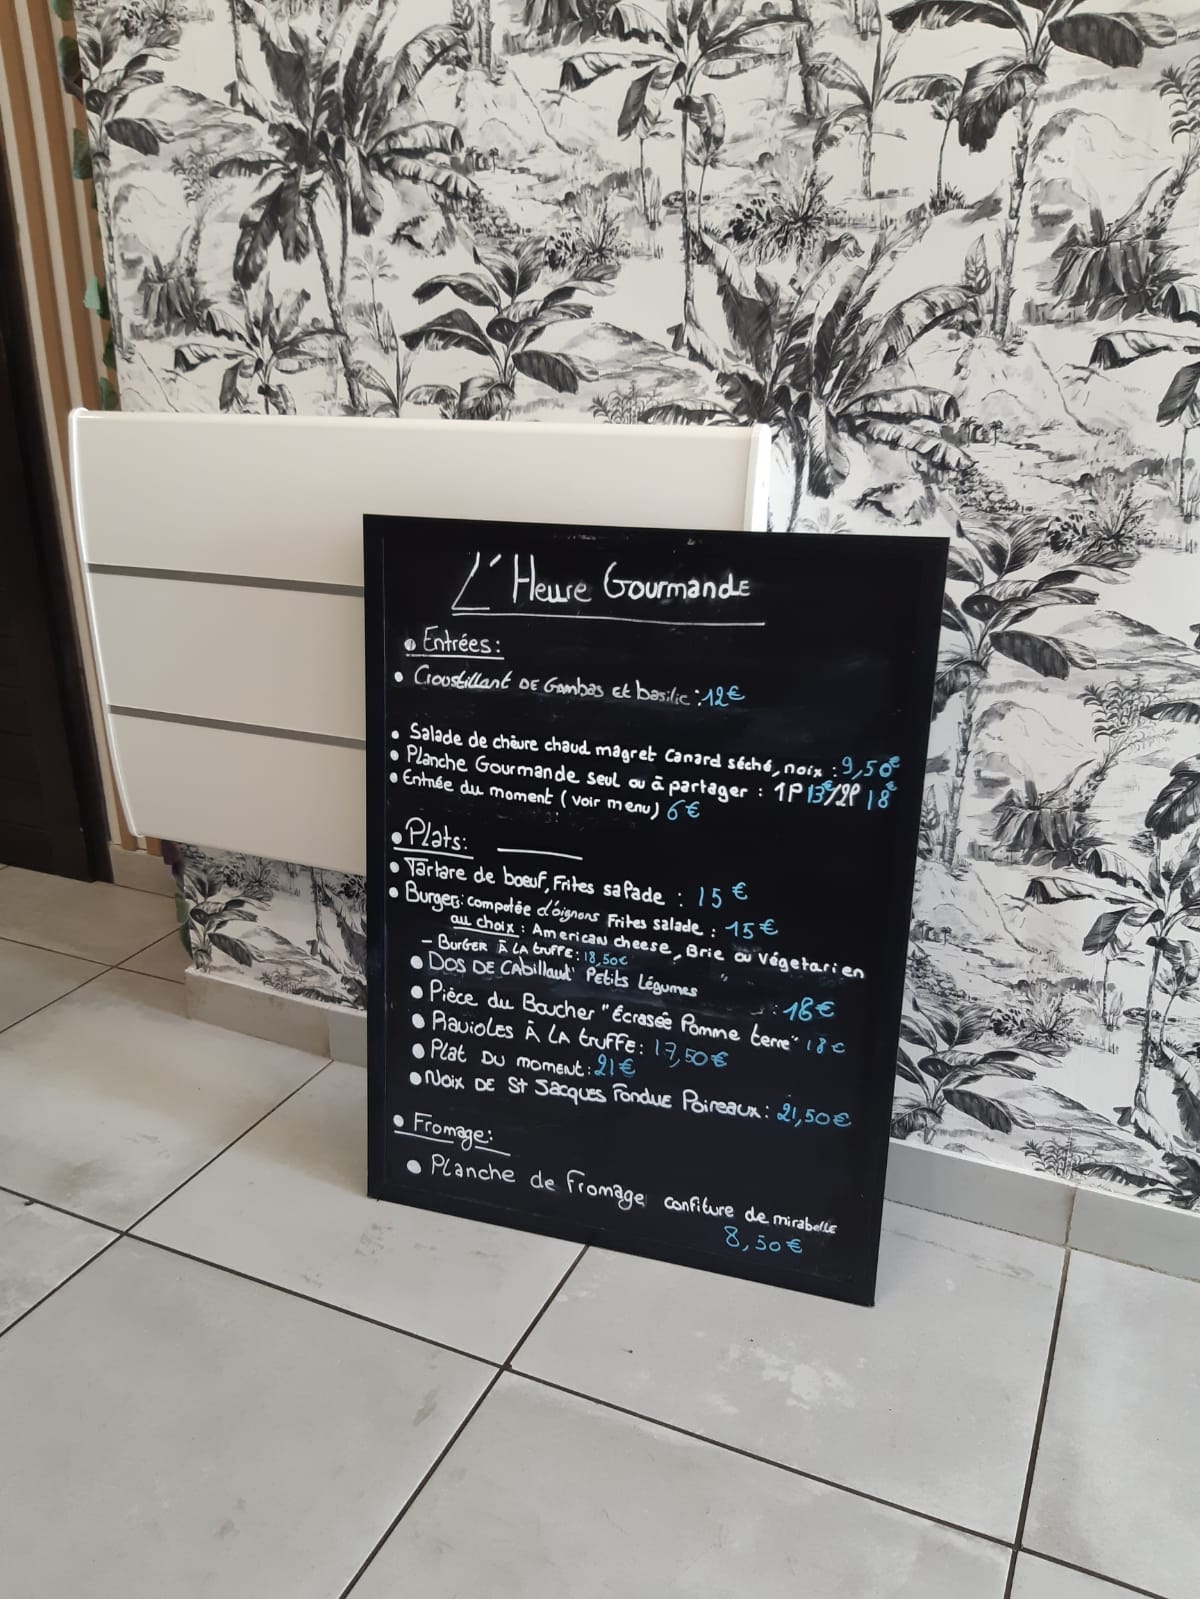 L'Heure Gourmande
• Entrées:
• Croustillant DE Gambas et basilic: 12€
• Salade de chèvre chaud magret Canard séché, noix : 9,50€
• Planche Gourmande seul ou à partager : 1P 13€/2P 18€
• Entrée du moment (voir menu) 6€
• Plats:
• Tartare de bœuf, Frites salade : 15€
• Burger: compotée d'oignons Frites salade : 15€
au choix : American cheese, Brie ou Végetarien
- BURGER À LA truffe: 18,50€
• DOS DE CAbillaud Petits Légumes : 18€
• Pièce du Boucher "Ecrasée Pomme terre" 18€
• Ravioles À LA truffe: 17,50€
• Plat DU moment: 21€
• Noix DE St Jacques Fondue Poireaux: 21,50€
• Fromage:
• Planche de Fromage confiture de mirabelle
8,50€